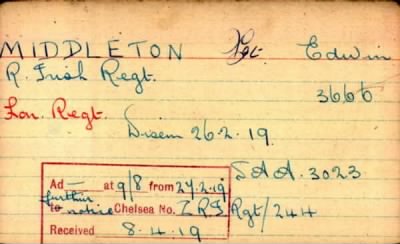 MIDDLETON Pte. Edwin
R. Irish Regt. 3666
Lon. Regt.
Disem 26.2.19
SAA. 3023
Ad — at 9/8 from 27.2.19
further
to notice Chelsea No. IRS Rgt/244
Received 8.4.19